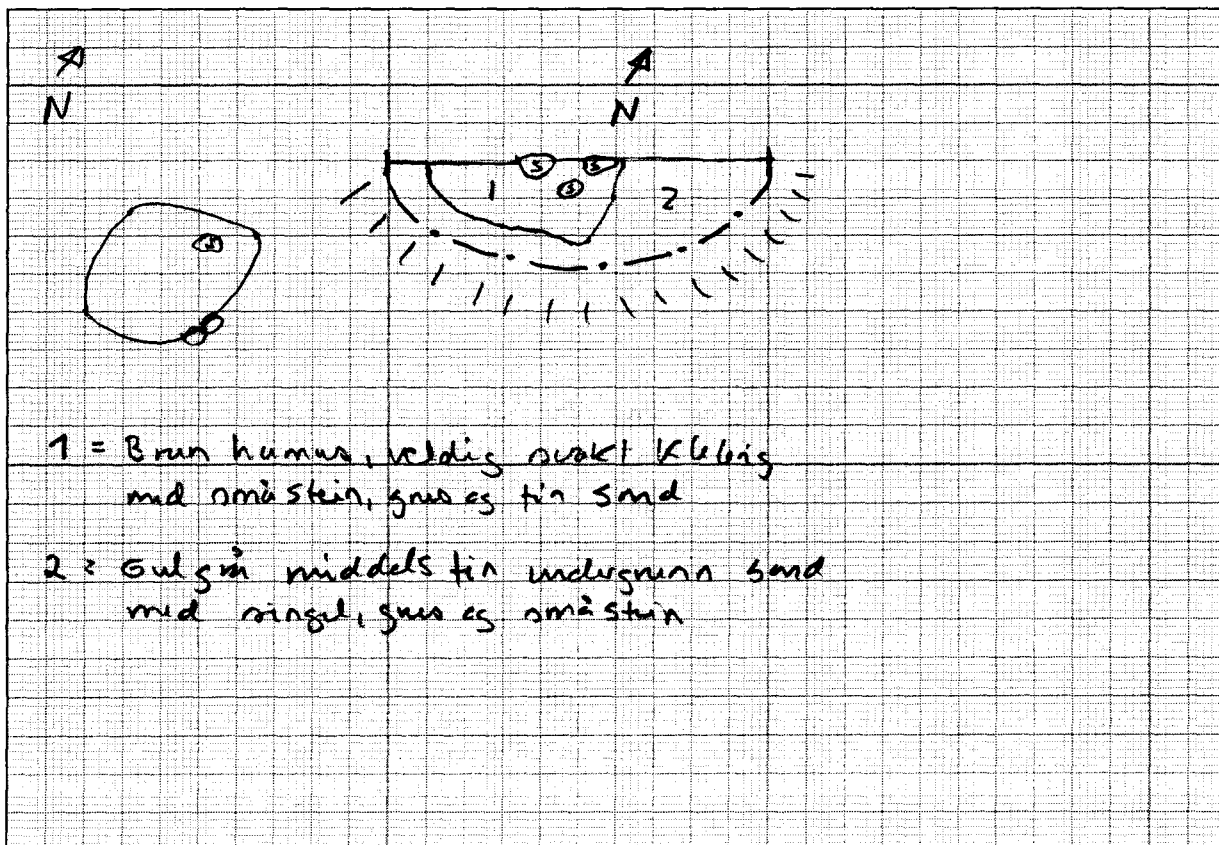 N
N
S
S
S
1
2
S
1 = Brun humus, veldig svakt klebrig
med småstein, grus og fin sand
2 = Gulgrå middels fin undergrunn sand
med singel, grus og småstein